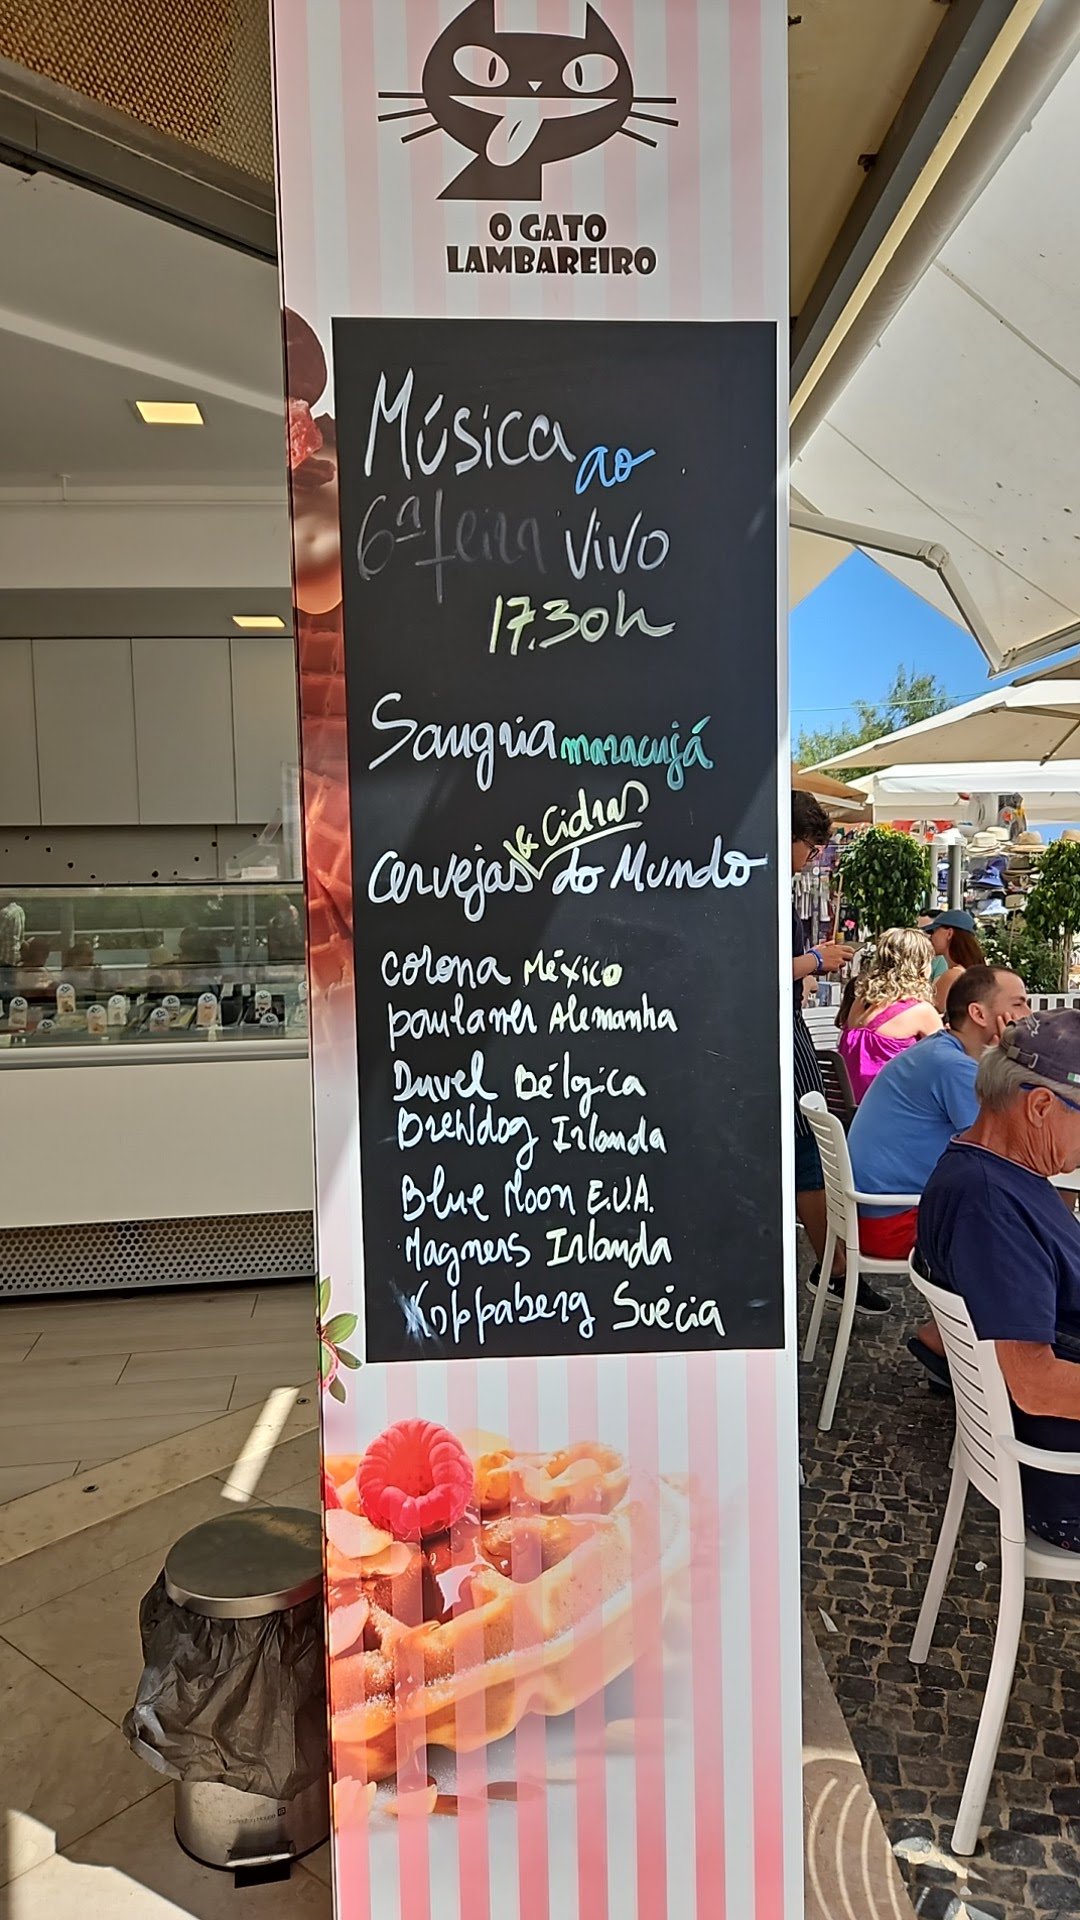 O GATO
LAMBAREIRO
Música ao
6ª feira vivo
17.30h
Sangria maracujá
& Cidras
Cervejas do Mundo
Corona México
paulaner Alemanha
Duvel Bélgica
Brewdog Irlanda
Blue Moon E.U.A.
Magners Irlanda
Koppaberg Suécia